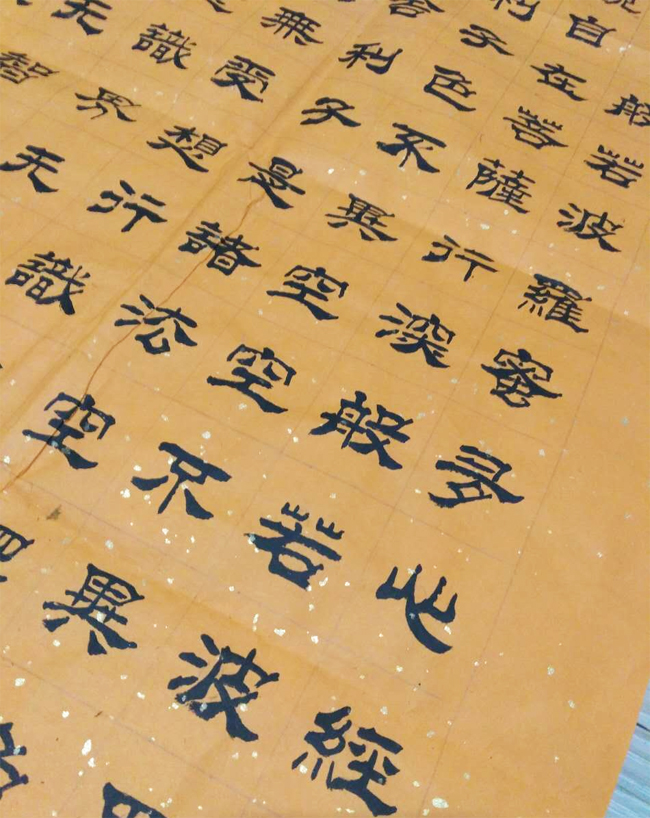 般若波羅蜜多心經
自在菩薩行深般若波
利子色不異空空不異
舍利子是諸法空
無受想行識
識界无
无智